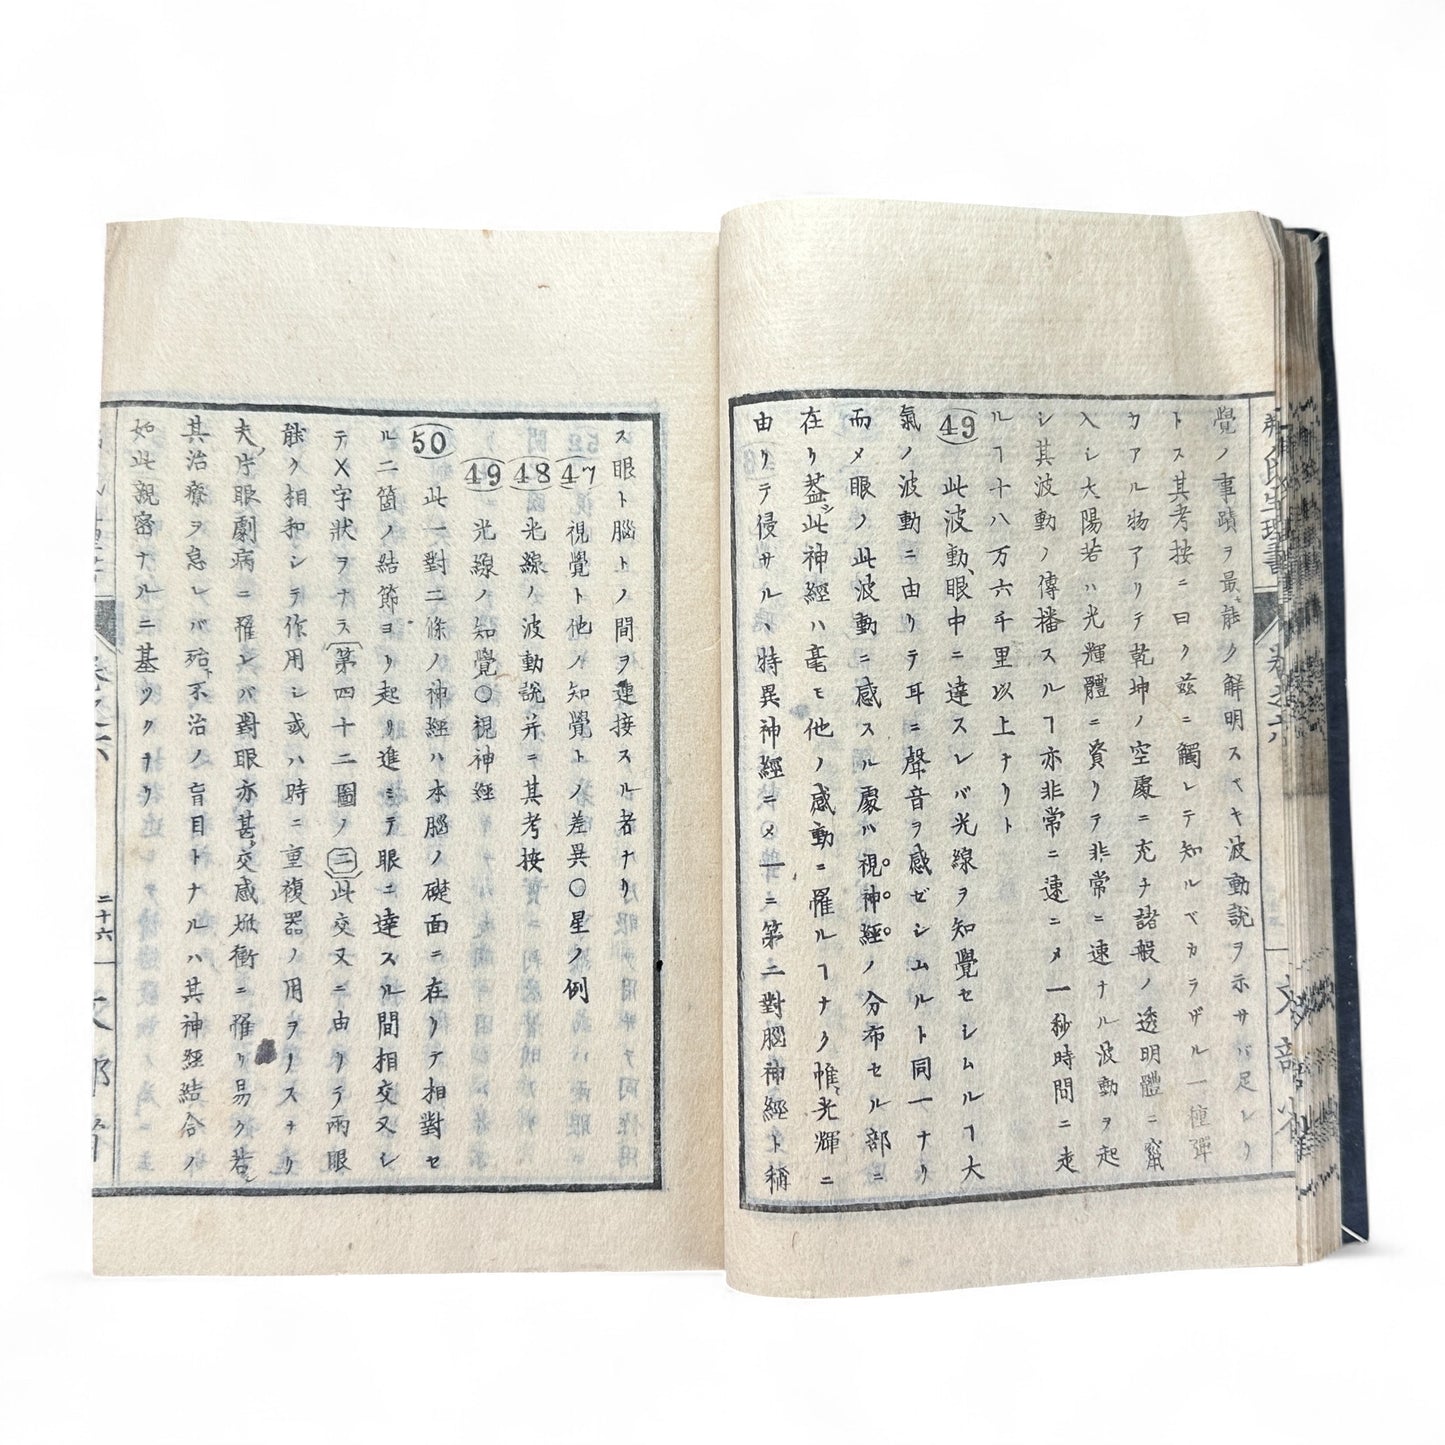 弗氏生理書 卷之六 文部省
覺ノ事蹟ヲ最能ク解明スベキ波動說ヲ示サバ足レリ
トス其考按ニ曰ク玆ニ觸レテ知ルベカラザル一種彈
力アル物アリテ乾坤ノ空處ニ充チ諸般ノ透明體ニ竄
入シ大陽若ハ光輝體ニ資リテ非常ニ速ナル波動ヲ起
シ其波動ノ傳播スルヿ亦非常ニ速ニメ一秒時間ニ走
ルヿ十八万六千里以上ナリト
49 此波動眼中ニ達スレバ光線ヲ知覺セシムルヿ大
氣ノ波動ニ由リテ耳ニ聲音ヲ感ゼシムルト同一ナリ
而メ眼ノ此波動ニ感スル處ハ視神經ノ分布セル部ニ
在リ蓋シ此神經ハ毫モ他ノ感動ニ罹ルヿナク惟光輝ニ
由リテ侵サル、特異神經ニメ一ニ第二對腦神經ト稱
ス眼ト腦トノ間ヲ連接スル者ナリ
47 視覺ト他ノ知覺トノ差異〇星ノ例
48 光線ノ波動說并ニ其考按
49 光線ノ知覺〇視神經
50 此一對二條ノ神經ハ本腦ノ礎面ニ在リテ相對セ
ル二箇ノ結節ヨリ起リ進ミテ眼ニ達スル間相交叉シ
テX字狀ヲナス第四十二圖ノ三此交叉ニ由リテ兩眼
能ク相和シテ作用シ或ハ時ニ重複器ノ用ヲナスナリ
夫片眼劇病ニ罹レバ對眼亦甚交感焮衝ニ罹リ易ク若
其治療ヲ怠レバ殆不治ノ盲目トナルハ其神經結合ノ
如此親密ナルニ基ツクナリ
卷之六 二十六 文部省